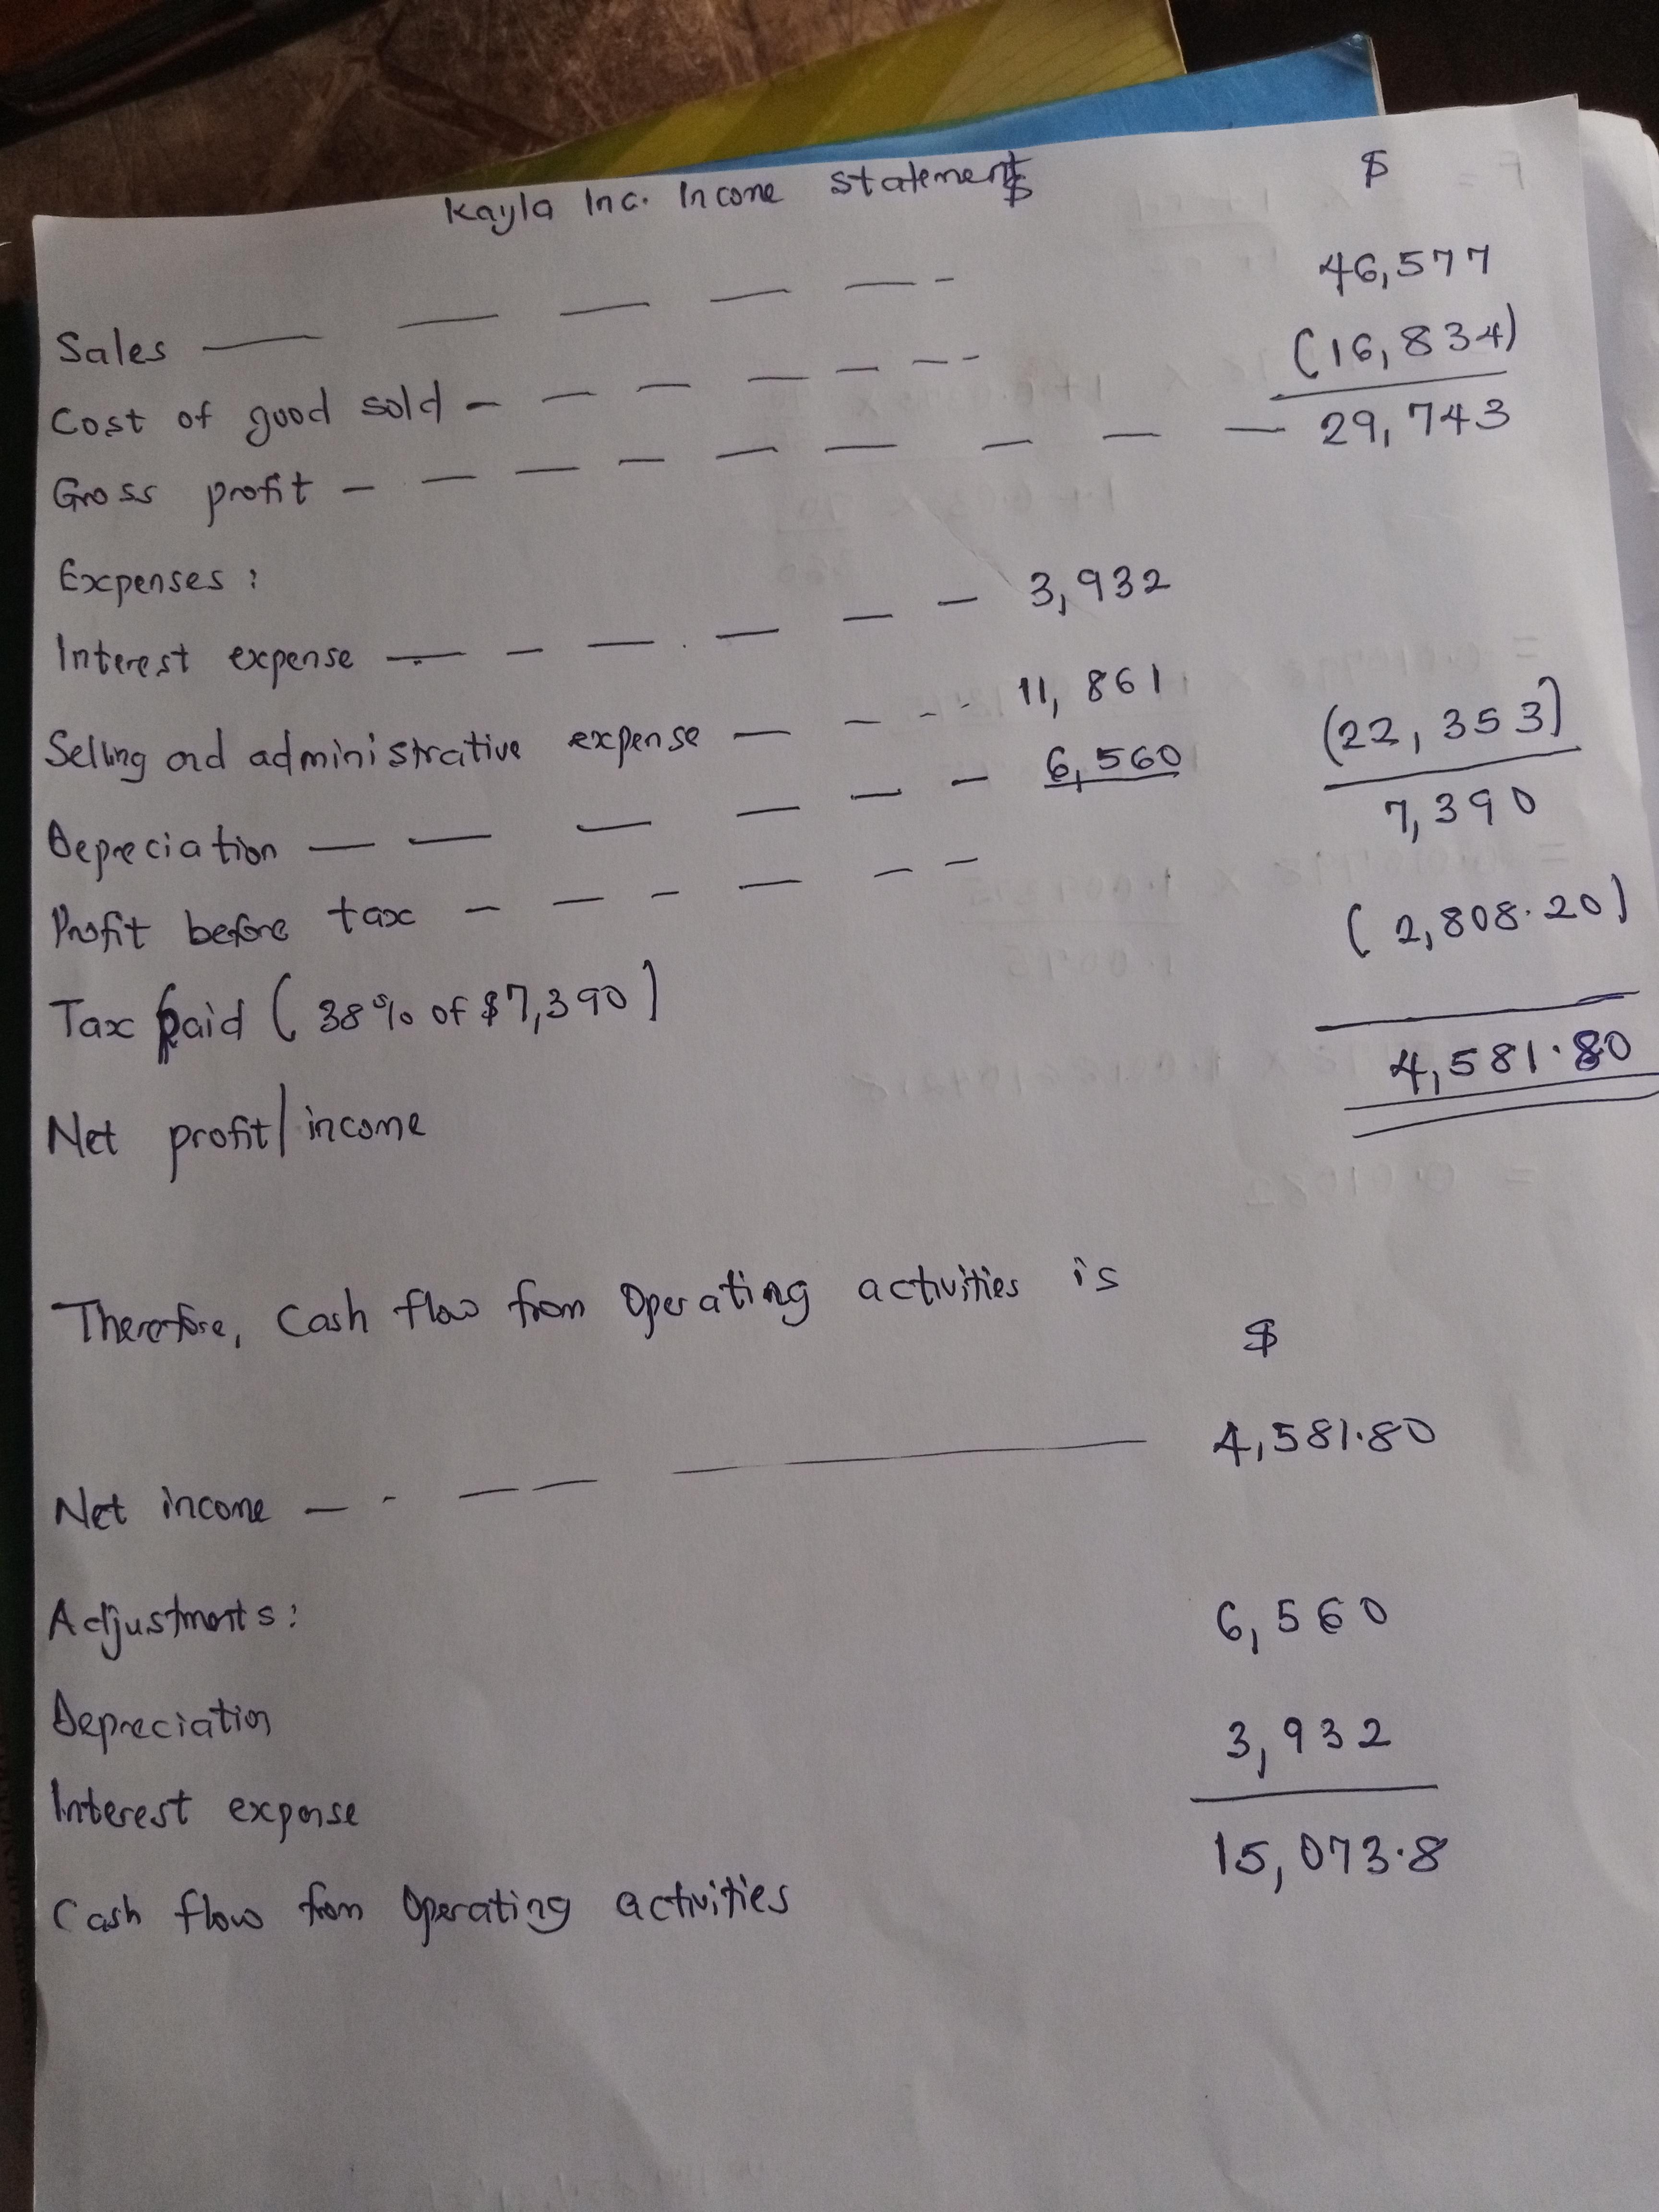 Kayla Inc. Income Statement $ $
Sales 46,577
Cost of good sold (16,834)
Gross profit 29,743
Expenses:
Interest expense 3,932
Selling and administrative expense 11,861
Depreciation 6,560 (22,353)
Profit before tax 7,390
Tax paid (38% of $7,390) (2,808.20)
Net profit/income 4,581.80
Therefore, Cash flow from Operating activities is
$
Net income 4,581.80
Adjustments:
Depreciation 6,560
Interest expense 3,932
Cash flow from Operating activities 15,073.8